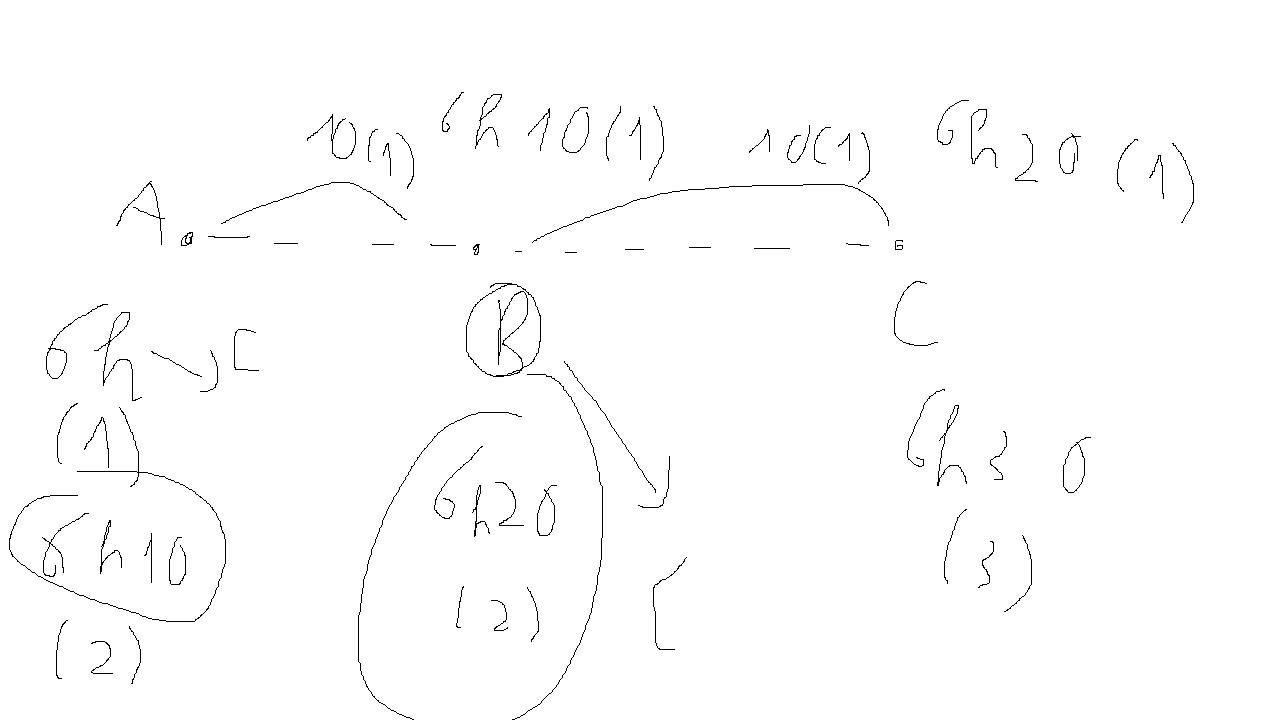 10(1) 6h10(1) 10(1) 6h20 (1)
A
B
C
6h
(1)
6h10
(2)
6h20
(2)
6h30
(3)